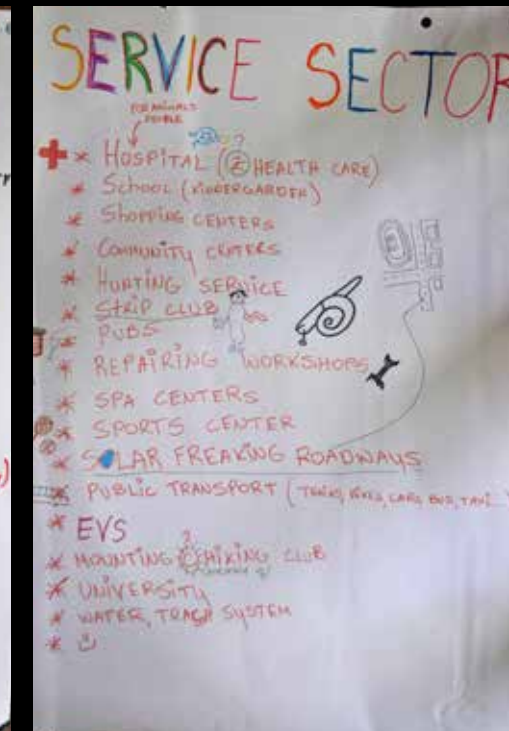 SERVICE SECTOR
FOR ANIMALS
PEOPLE
* HOSPITAL (HEALTH CARE)
* School (KINDERGARDEN)
* Shopping CENTERS
* COMMUNITY CENTERS
* HUNTING SERVICE
* STRIP CLUB
* PUBS
* REPAIRING WORKSHOPS
* SPA CENTERS
* SPORTS CENTER
* SOLAR FREAKING ROADWAYS
* PUBLIC TRANSPORT (BUS, TAXI...
* EVS
* MOUNTING HIKING CLUB
* UNIVERSITY
* WATER, TRASH SYSTEM
*